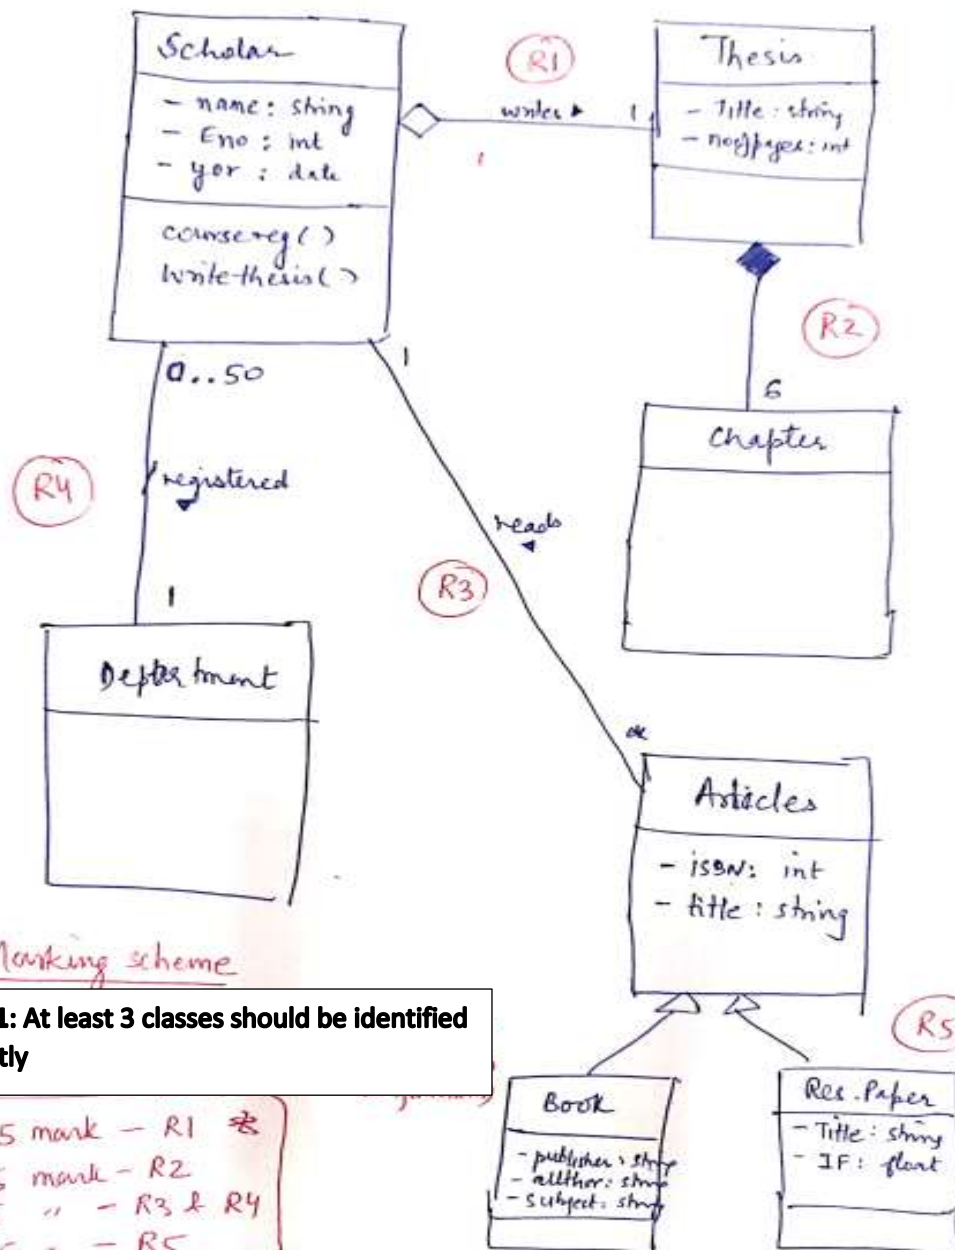 Scholar
- name : string
- Eno : int
- yor : date
coursereg ( )
Writethesis ( )
R1
writes ▶
1
1
Thesis
- Title : string
- noofpages : int
R2
6
Chapter
0..50
1
R4
registered
▼
1
Department
reads
◀
R3
*
Articles
- ISBN : int
- title : string
R5
Book
- publisher : string
- author : string
- subject : string
Res. Paper
- Title : string
- IF : float
Marking scheme
1: At least 3 classes should be identified
tly
5 mark - R1 *
mark - R2
" - R3 & R4
- R5